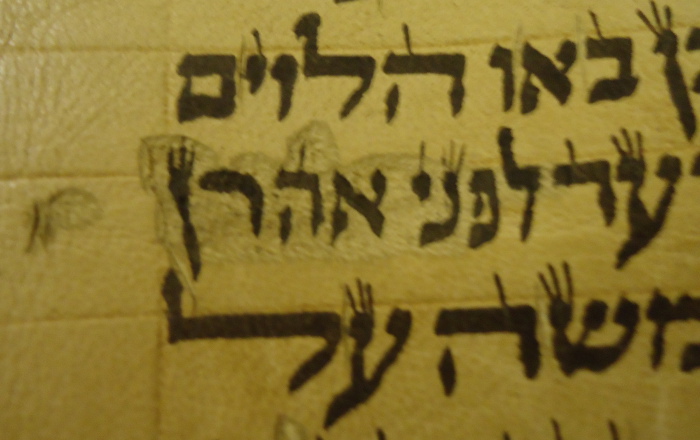 ן באו הלוים
עד לפני אהרן
משה על